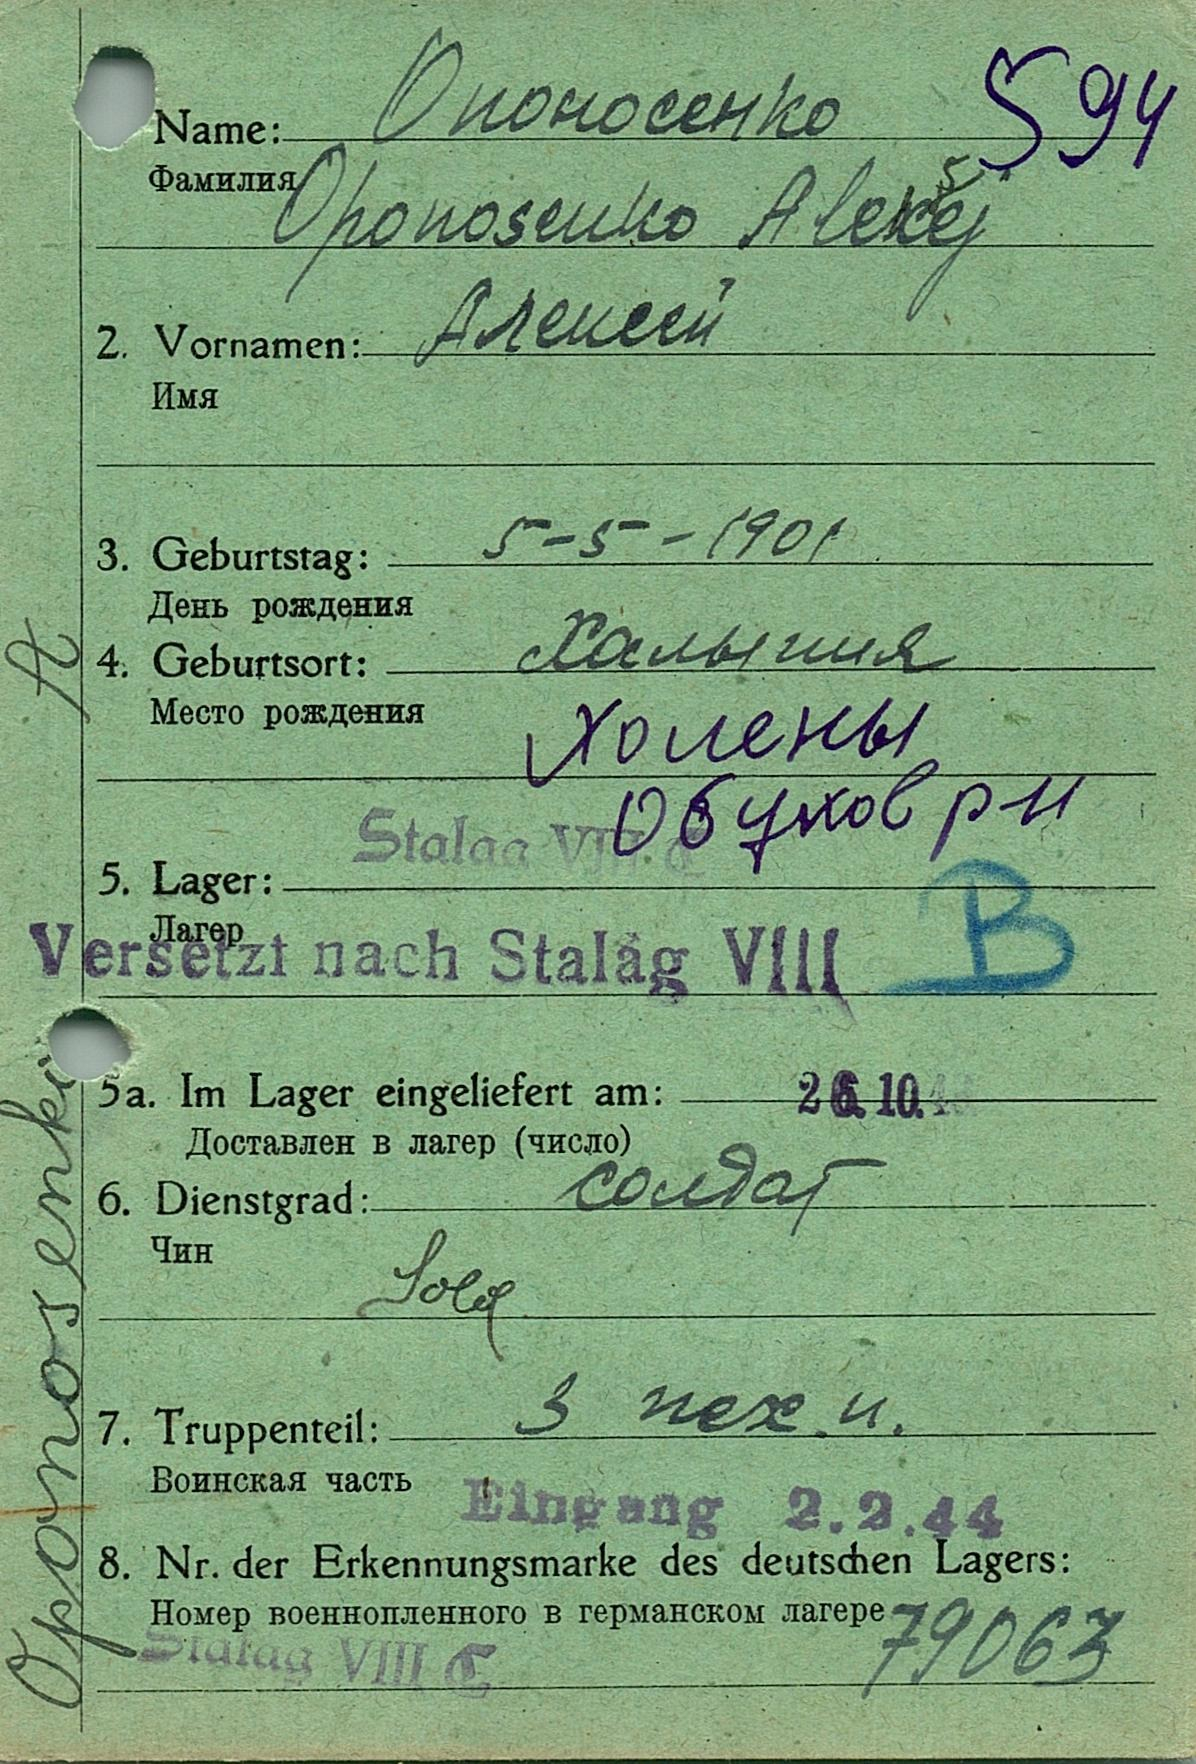 594
Name: Опоносенко
Фамилия
Oponosenko Aleksěj
2. Vornamen: Алексей
Имя
3. Geburtstag: 5-5-1901
День рождения
4. Geburtsort:
Место рождения
Холепы
Обухов р-н
Stalag VIII C
5. Lager:
Лагер
Versetzt nach Stalag VIII B
5a. Im Lager eingeliefert am: 26.10.
Доставлен в лагер (число)
6. Dienstgrad: солдат
Чин
Sold
7. Truppenteil: 3 пех. п.
Воинская часть
Eingang 2.2.44
8. Nr. der Erkennungsmarke des deutschen Lagers:
Номер военнопленного в германском лагере 79063
Stalag VIII C
Oponosenko A